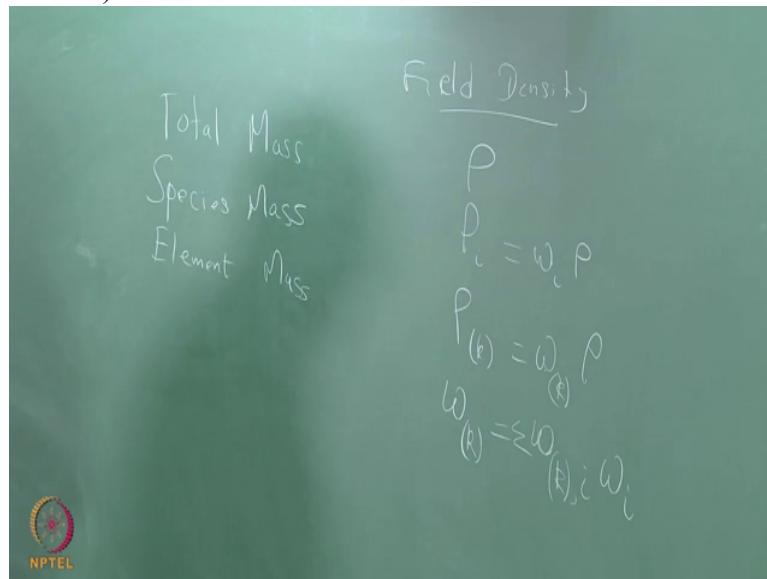 Total Mass
Species Mass
Element Mass
Field Density
ρ
ρ_i = ω_i ρ
ρ_(k) = ω_(k) ρ
ω_(k) = Σ ω_(k),i ω_i
NPTEL